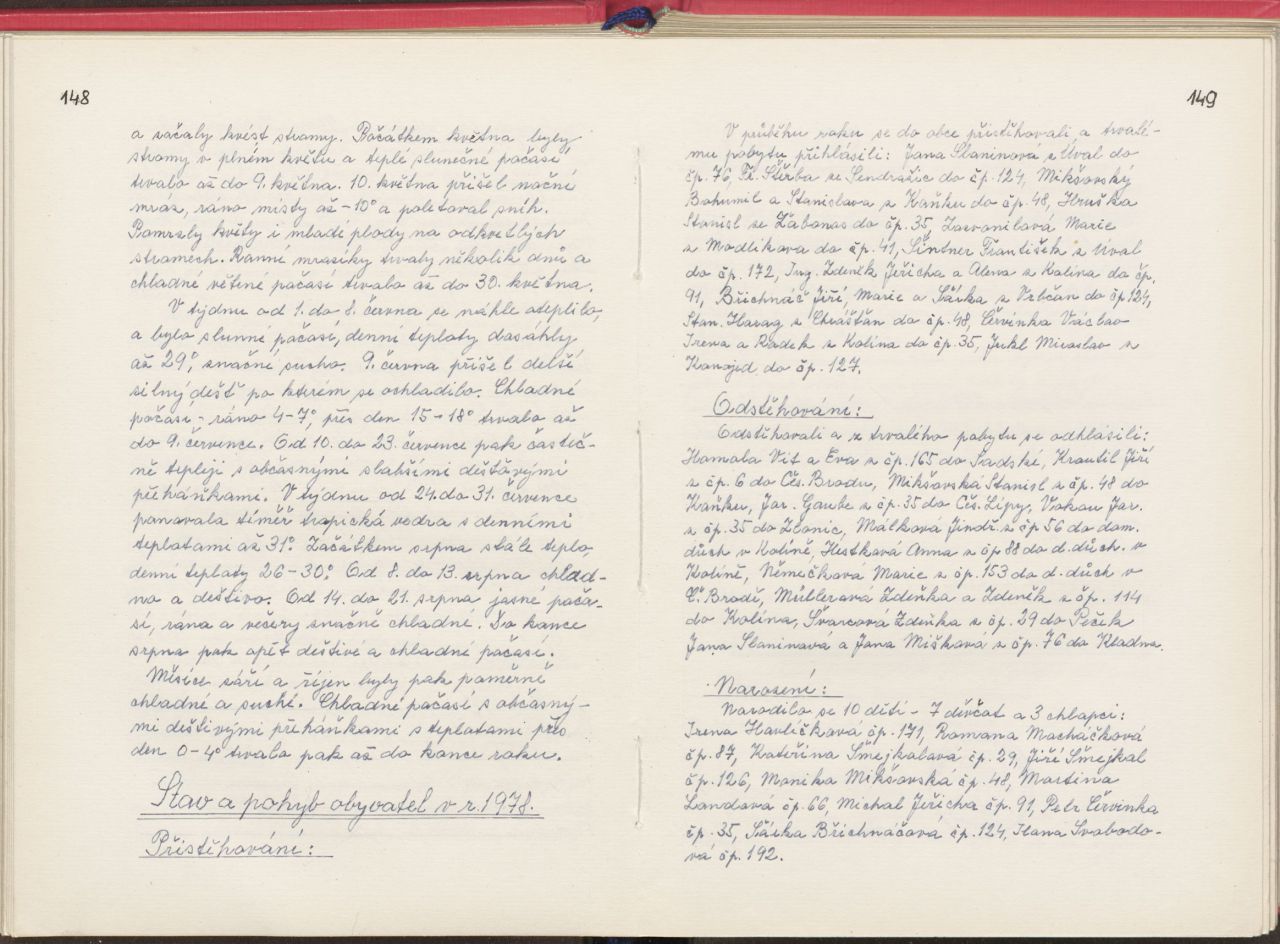 148
a začaly kvést stromy. Počátkem května byly
stromy v plném květu a teplé slunečné počasí
trvalo až do 9. května. 10. května přišel noční
mráz, ráno místy až -10° a poletoval sníh.
Pomrzly květy i mladé plody na odkvetlých
stromech. Ranní mrazíky trvaly několik dnů a
chladné větrné počasí trvalo až do 30. května.
V týdnu od 1. do 8. června se náhle oteplilo,
a bylo slunné počasí, denní teploty dosáhly
až 29°, značné sucho. 9. června přišel delší
silný déšť po kterém se ochladilo. Chladné
počasí - ráno 4-7°, přes den 15-18° trvalo až
do 9. července. Od 10. do 23. července pak částeč-
ně tepleji s občasnými slabšími dešťovými
přeháňkami. V týdnu od 24. do 31. července
panovala téměř tropická vedra s denními
teplotami až 31°. Začátkem srpna stále teplo
denní teploty 26-30°. Od 8. do 13. srpna chlad-
no a deštivo. Od 14. do 21. srpna jasné poča-
sí, rána a večery značně chladné. Do konce
srpna pak opět deštivé a chladné počasí.
Měsíce září a říjen byly pak poměrně
chladné a suché. Chladné počasí s občasný-
mi deštivými přeháňkami s teplotami přes
den 0-4° trvalo pak až do konce roku.
Stav a pohyb obyvatel v r. 1978.
Přistěhování:
149
V průběhu roku se do obce přistěhovali a trvalé-
mu pobytu přihlásili: Jana Slaninová z Úval do
čp. 76, Fr. Štěrba ze Sendražic do čp. 124, Mikšovský
Bohumil a Stanislava z Kaňku do čp. 48, Hruška
Stanisl ze Žabonos do čp. 35, Zarvanilová Marie
z Modlíkova do čp. 41, Šintner František z Úval
do čp. 172, Ing. Zdeněk Jeřicha a Alena z Kolína do čp.
91, Břichnáč Jiří, Marie a Šárka z Vrbčan do čp 124,
Stan. Harag z Chrášťan do čp. 48, Červinka Václav
Irena a Radek z Kolína do čp. 35, Jukl Miroslav z
Konojed do čp. 127.
Odstěhování:
Odstěhovali a z trvalého pobytu se odhlásili:
Homola Vít a Eva z čp. 165 do Sadské, Kroutil Jiří
z čp. 6 do Čes. Brodu, Mikšovská Stanisl z čp. 48 do
Kaňku, Jar. Goube z čp. 35 do Čes. Lípy, Vokou Jar.
z čp. 35 do Zlonic, Málková Jindř. z čp 56 do dom.
důch v Kolíně, Hestková Anna z čp 88 do d. důch. v
Kolíně, Němečková Marie z čp. 153 do d. důch v
Č. Brodě, Müllerová Zdeňka a Zdeněk z čp. 114
do Kolína, Švarcová Zdeňka z čp. 29 do Peček
Jana Slaninová a Jana Mišková z čp. 76 do Kladna.
Narození:
Narodilo se 10 dětí - 7 děvčat a 3 chlapci:
Irena Havlíčková čp. 171, Romana Macháčková
čp. 87, Kateřina Smejkalová čp. 29, Jiří Šmejkal
čp. 126, Monika Mikšovská čp. 48, Martina
Landová čp. 66, Michal Jeřicha čp. 91, Petr Červinka
čp. 35, Šárka Břichnáčová čp. 124, Ilona Svobodo-
vá čp. 192.